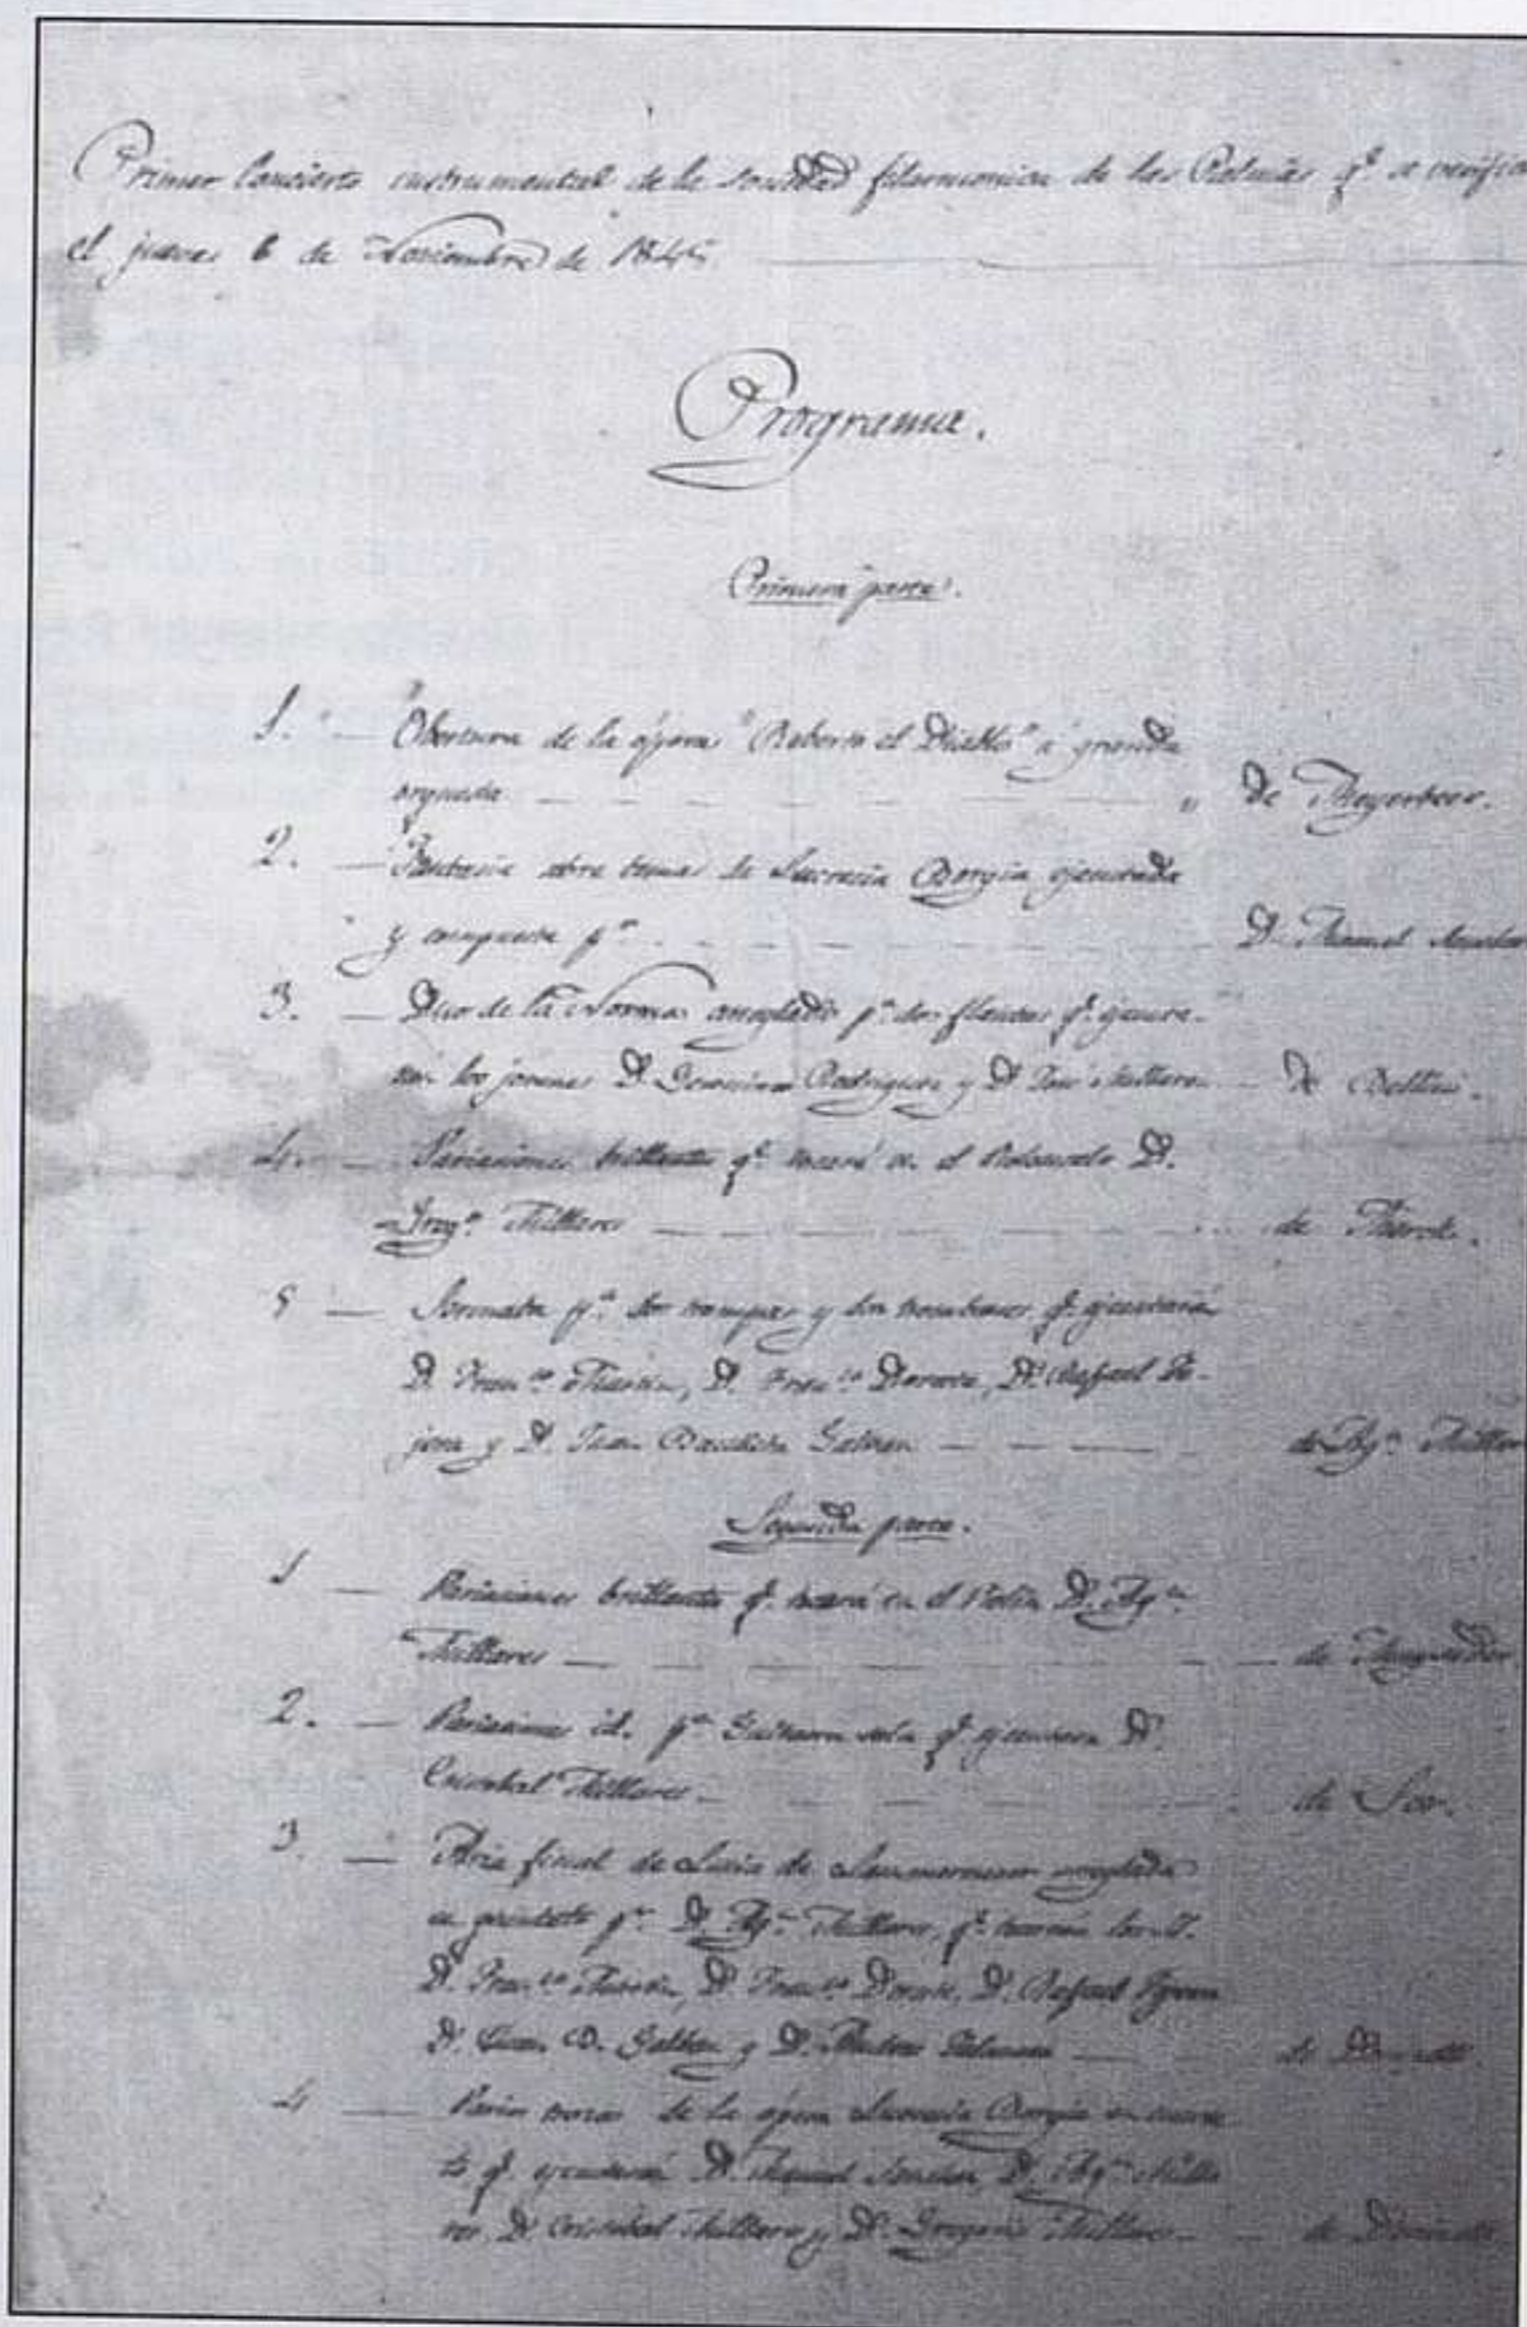 Primer Concierto instrumental de la sociedad filarmonica de las Palmas q.e se verifica
el jueves 6 de Noviembre de 1845
Programa.
Primera parte.
1. — "Obertura de la ópera "Roberto el Diablo" á grande
orquesta — — — — — " de Meyerbeer.
2. — Fantasia sobre temas de Lucrecia Borgia ejecutada
y compuesta p.r — — — — D. Manuel
3. — Duo de la Norma arreglado p.a dos flautas q.e ejecuta-
rán los jovenes D. Rodriguez y D. José Millares — de Bellini.
4. — Variaciones brillantes q.e tocará en el Violoncelo D.
Greg.o Millares — — — — de
5 — p.a dos trompas y dos trombones q.e ejecutarán
D. Fran.co Martin, D. Fran.co D. Rafael
y D. Juan Bautista — — — de Ag.n Millar
Segunda parte.
1 — Variaciones brillantes q.e tocará en el Violin D. Ag.n
Millares — — — — — de Mayseder
2. — Variaciones id. p.a Guitarra sola q.e ejecutara D.
Cristobal Millares — — — — de Sor.
3. — Aria final de Lucia de arreglada
en quinteto p.r D. Ag.n Millares, q.e
D. Fran.co Martin, D. Fran.co D. Rafael
D. Juan B. y D. — — de
4 — de la ópera Lucrecia Borgia en cuarte
to q.e ejecutarán D. Manuel D. Ag.n Milla
res D. Cristobal Millares y D. Gregorio Millares — de